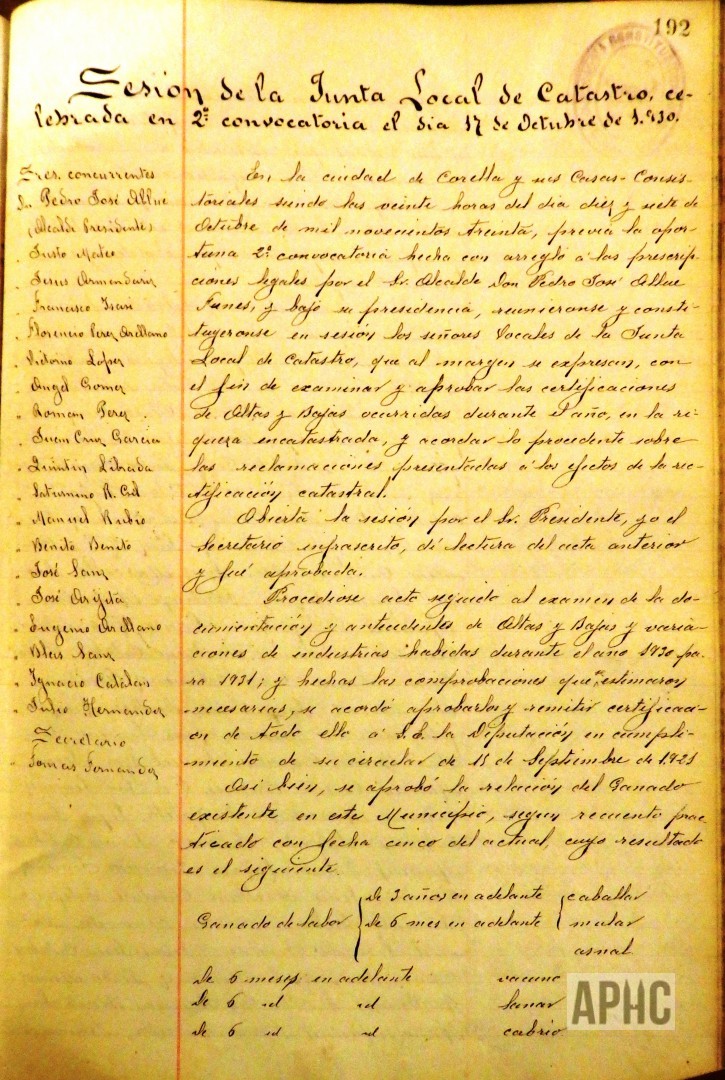 192
Sesión de la Junta Local de Catastro, ce-
lebrada en 2ª convocatoria el dia 17 de Octubre de 1.930.
Sres. concurrentes
Dn Pedro José Allue
(Alcalde Presidente)
" Justo Mateo
" Jesus Armendariz
" Francisco
" Florencio Perez Arellano
" Victorino Lopez
" Angel Gomez
" Roman Perez
" Juan Cruz Garcia
" Quintin Librada
" Saturnino R. Gil
" Manuel Rubio
" Benito Benito
" José Sanz
" José Arigita
" Eugenio Arellano
" Blas Sanz
" Ignacio Catalan
" Julio Hernandez
Secretario
" Tomas Fernandez
En la ciudad de Corella y sus Casas-Consis-
toriales siendo las veinte horas del dia diez y siete de
Octubre de mil novecientos treinta, previa la apor-
tuna 2ª convocatoria hecha con arreglo á las prescrip-
ciones legales por el Sr. Alcalde Don Pedro José Allue
Funes, y bajo su presidencia, reunieronse y consti-
tuyeronse en sesión los señores Vocales de la Junta
Local de Catastro, que al margen se expresan, con
el fin de examinar y aprobar las certificaciones
de Altas y Bajas ocurridas durante el año, en la ri-
queza encatastrada, y acordar lo procedente sobre
las reclamaciones presentadas á los efectos de la rec-
tificación catastral.
Abierta la sesión por el Sr. Presidente, yo el
Secretario infrascrito, dí lectura del acta anterior
y fué aprobada.
Procediose acto seguido al examen de la do-
cumentación y antecedentes de Altas y Bajas y varia-
ciones de industrias habidas durante el año 1930 pa-
ra 1931; y hechas las comprobaciones que estimaron
necesarias, se acordó aprobarlas y remitir certificaci-
on de todo ello á S.E. la Diputación en cumpli-
miento de su circular de 15 de Septiembre de 1921
Asi bien, se aprobó la relación del Ganado
existente en este Municipio, segun recuento prac-
ticado con fecha cinco del actual, cuyo resultado
es el siguiente.
Ganado de labor { De 3 años en adelante { caballar
De 6 mes en adelante mular
asnal
De 6 meses en adelante vacuno
De 6 id id lanar
De 6 id id cabrio
APHC